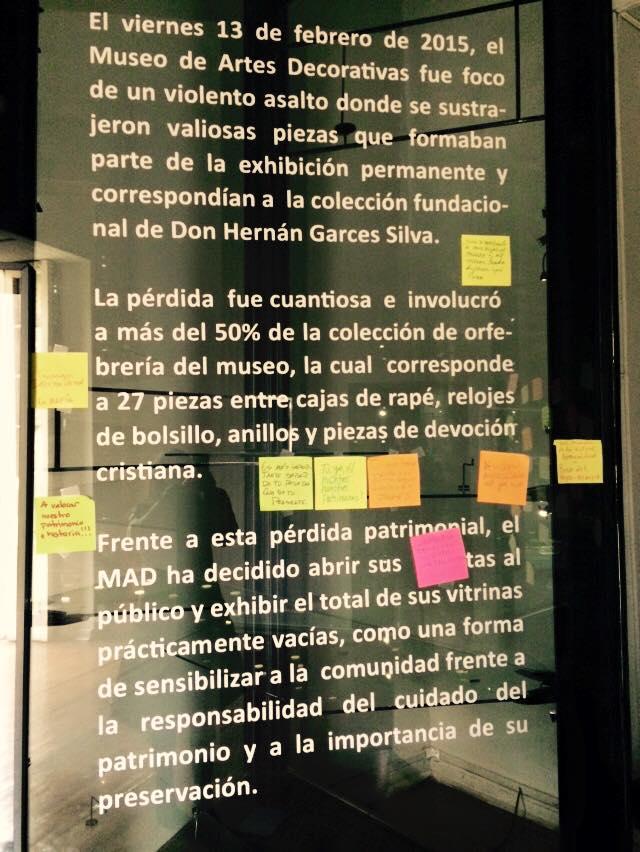 El viernes 13 de febrero de 2015, el
Museo de Artes Decorativas fue foco
de un violento asalto donde se sustra-
jeron valiosas piezas que formaban
parte de la exhibición permanente y
correspondían a la colección fundacio-
nal de Don Hernán Garces Silva.
La pérdida fue cuantiosa e involucró
a más del 50% de la colección de orfe-
brería del museo, la cual corresponde
a 27 piezas entre cajas de rapé, relojes
de bolsillo, anillos y piezas de devoción
cristiana.
A valorar
nuestro
patrimonio
e historia...!!!
Frente a esta pérdida patrimonial, el
MAD ha decidido abrir sus tas al
público y exhibir el total de sus vitrinas
prácticamente vacías, como una forma
de sensibilizar a la comunidad frente a
la responsabilidad del cuidado del
patrimonio y a la importancia de su
preservación.